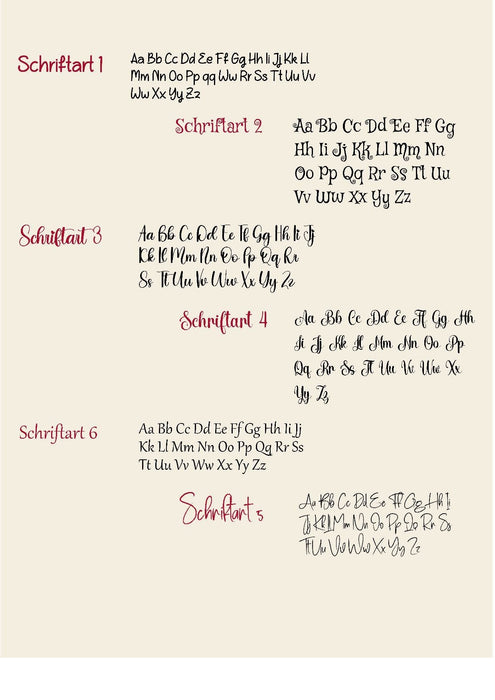 Schriftart 1
Aa Bb Cc Dd Ee Ff Gg Hh Ii Jj Kk Ll
Mm Nn Oo Pp qq Ww Rr Ss Tt Uu Vv
Ww Xx Yy Zz
Schriftart 2
Aa Bb Cc Dd Ee Ff Gg
Hh Ii Jj Kk Ll Mm Nn
Oo Pp Qq Rr Ss Tt Uu
Vv Ww Xx Yy Zz
Schriftart 3
Aa Bb Cc Dd Ee Ff Gg Hh Ii Jj
Kk Ll Mm Nn Oo Pp Qq Rr
Ss Tt Uu Vv Ww Xx Yy Zz
Schriftart 4
Aa Bb Cc Dd Ee Ff Gg Hh
Ii Jj Kk Ll Mm Nn Oo Pp
Qq Rr Ss Tt Uu Vv Ww Xx
Yy Zz
Schriftart 6
Aa Bb Cc Dd Ee Ff Gg Hh Ii Jj
Kk Ll Mm Nn Oo Pp Qq Rr Ss
Tt Uu Vv Ww Xx Yy Zz
Schriftart 5
Aa Bb Cc Dd Ee Ff Gg Hh Ii
Jj Kk Ll Mm Nn Oo Pp Qq Rr Ss
Tt Uu Vv Ww Xx Yy Zz